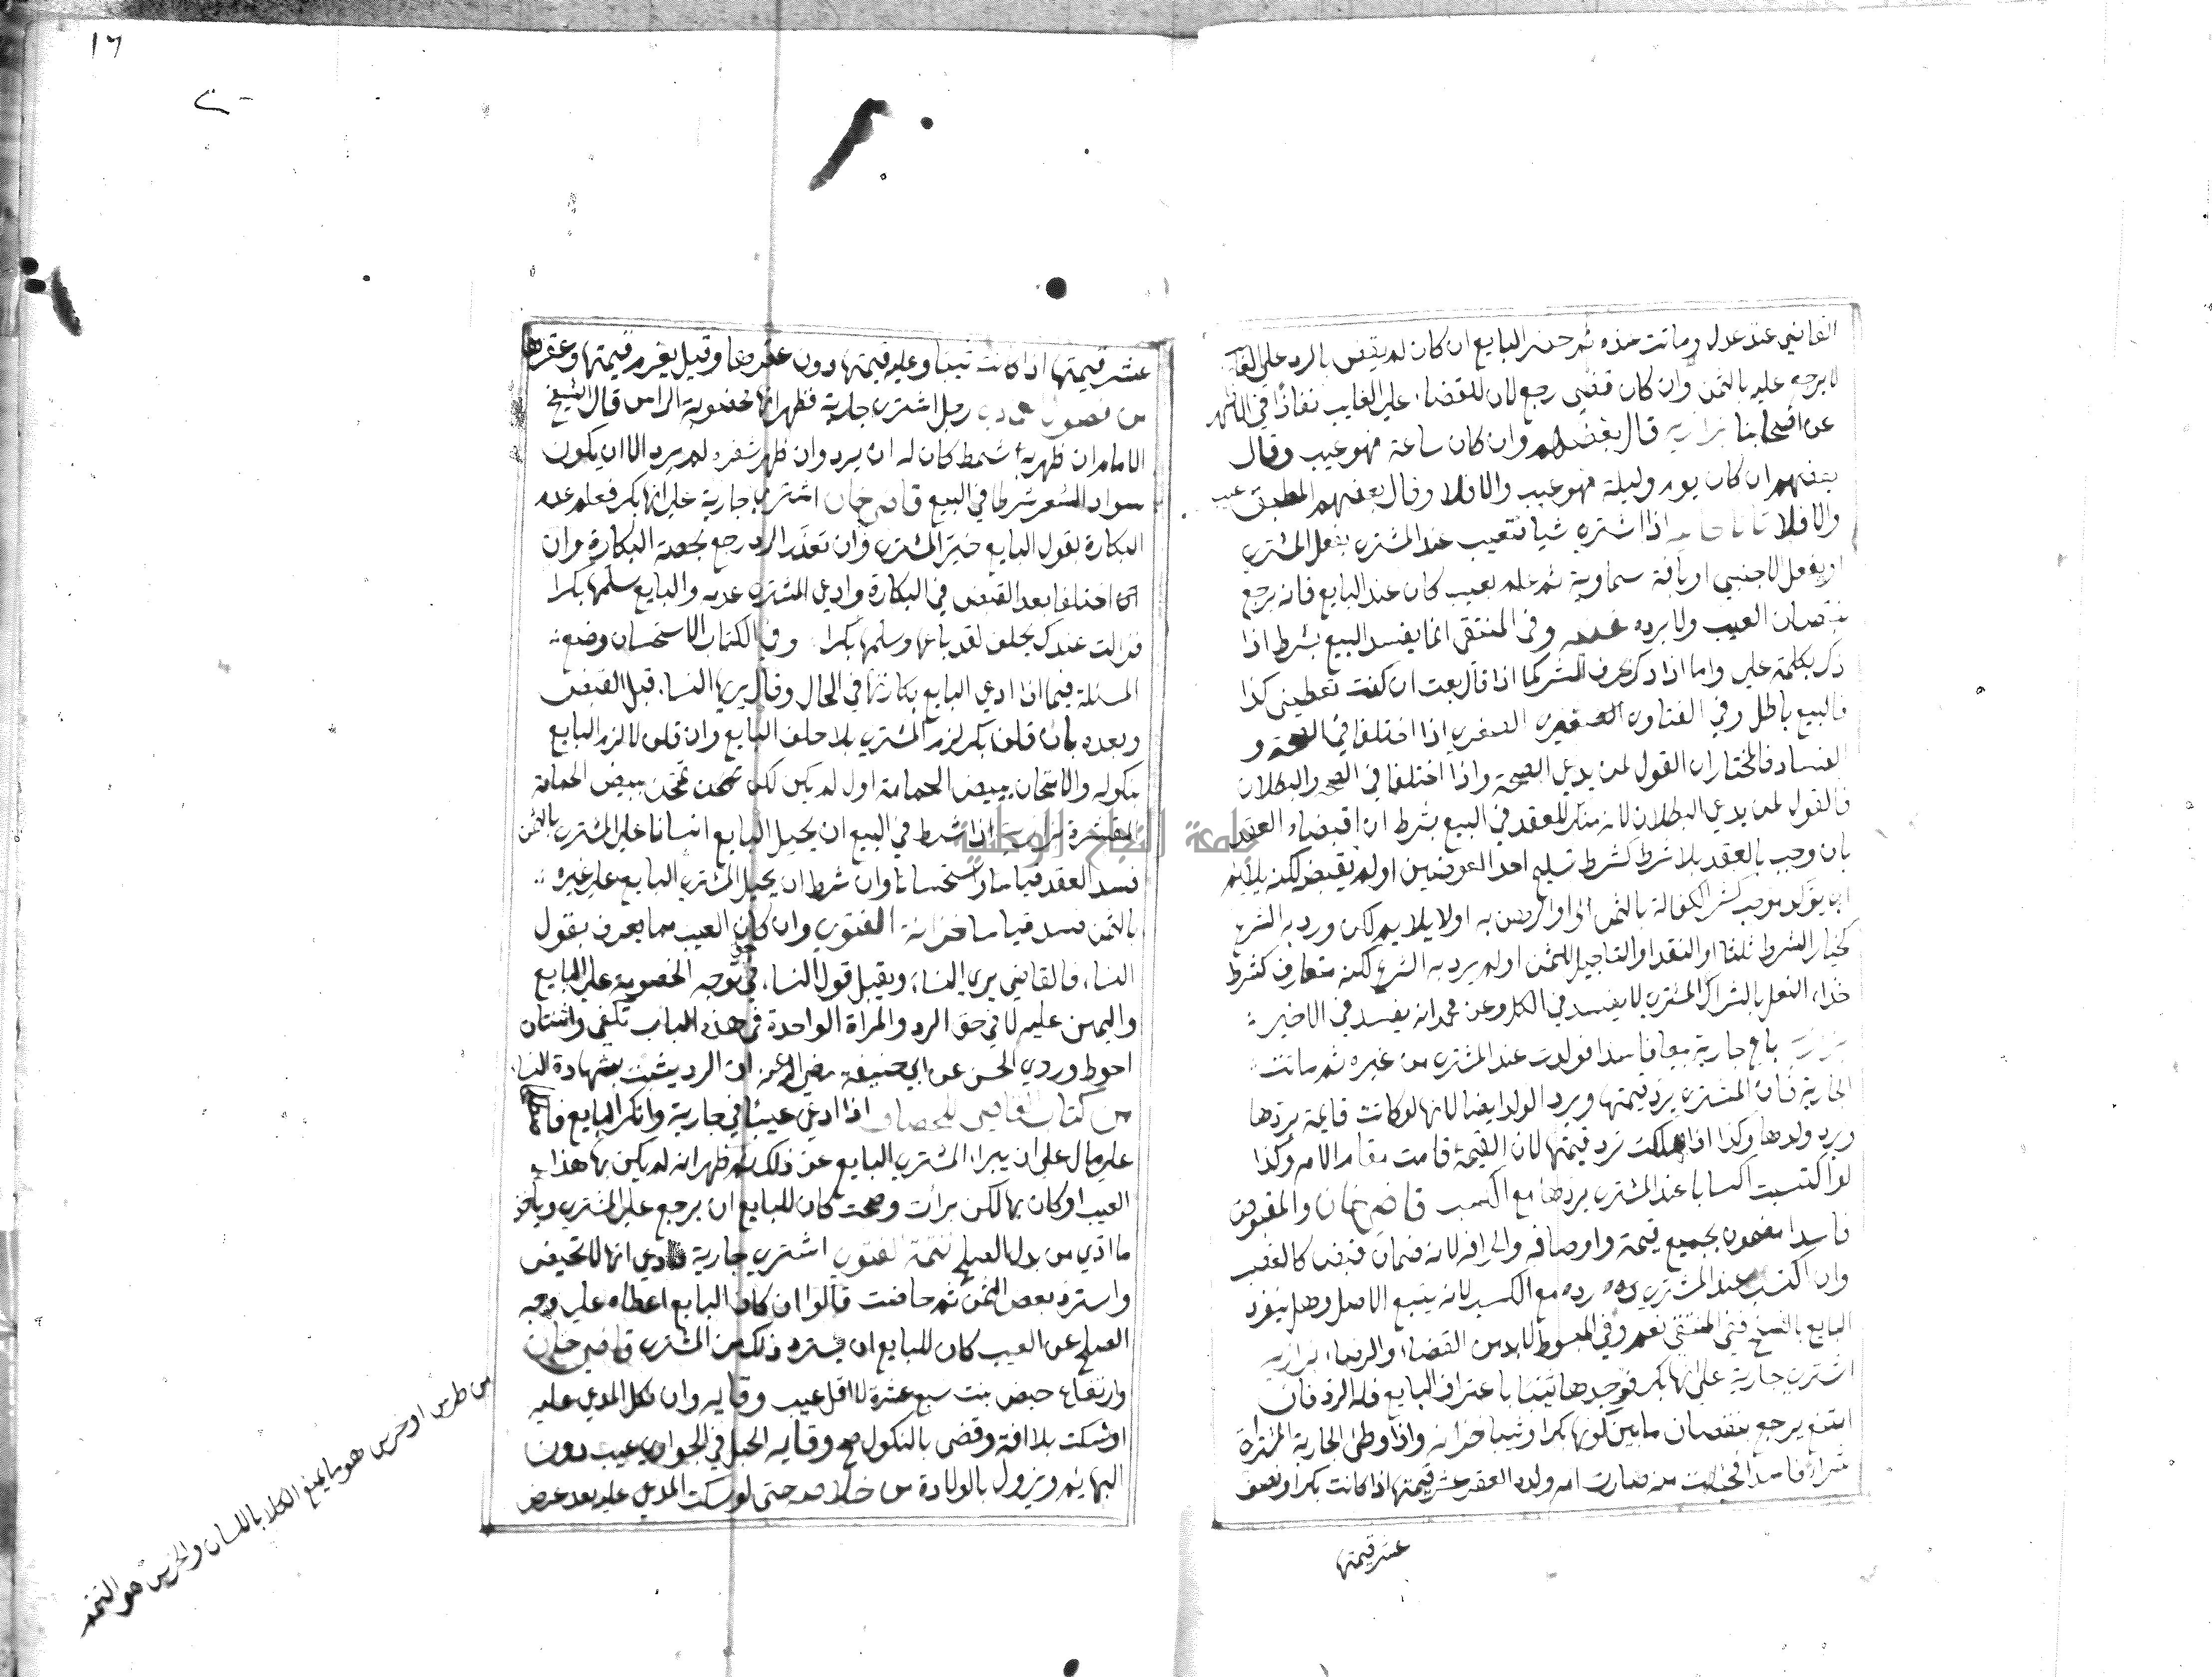 القاضي عند عدل وماتت عنده ثم حضر البايع ان كان لم يقض بالرد علي الغا
لا يرجع عليه بالثمن وان كان قضي رجع لان للقضاء علي الغايب نفاذا في الاظهر
عن اصحابنا بزازيه قال بعضهم وان كان ساعة فهو عيب وقال
بعضهم ان كان يوم وليلة فهو عيب والا فلا وقال بعضهم المطبق عيب
والا فلا تاتارخانيه اذا اشتري شيا فتعيب عند المشتري بفعل المشتري
او بفعل الاجنبي او بافة سماوية ثم علم بعيب كان عند البايع فانه يرجع
بنقصان العيب ولا يرده وفي المنتقي انما يفسد البيع بشرط اذا
ذكر بكلمة علي واما اذا ذكر بحرف الشرط كما اذا قال بعت ان كنت تعطيني كذا
فالبيع باطل وفي الفتاوي الصغري اذا اختلفا في الصحة و
الفساد فالمختار ان القول لمن يدعي الصحة واذا اختلفا في الصحة والبطلان
فالقول لمن يدعي البطلان لانه منكر للعقد في البيع بشرط ان اقتضاه العقد
بان وجب بالعقد بلا شرط كشرط تسليم احد العوضين او لم يقتضه لكنه يلايم
اي يؤكد موجبه كشرط الكفالة بالثمن او الرهن به او لا يلايم لكن ورد به الشرع
كخيار الشرط ثلثا او النقد او التاجيل للثمن او لم يرد به الشرع لكنه متعارف كشرط
حذاء النعل بالشراك المشتري لا يفسد في الكل وعن محمد انه يفسد في الاخير
باع جارية بيعا فاسدا فولدت عند المشتري من غيره ثم ماتت
الجارية فان المشتري يرد قيمتها ويرد الولد ايضا لانها لو كانت قايمة يردها
ويرد ولدها وكذا اذا هلكت ترد قيمتها لان القيمة قامت مقام الام وكذا
لو اكتسبت اكسابا عند المشتري يردها مع الكسب قاضي خان والمقبوض
فاسدا مضمون بجميع قيمته واوصافه لانه ضمان قبض كالغصب
وان اكتسب عند المشتري رده مع الكسب لانه يتبع الاصل وهل ينفرد
البايع بالفسخ ففي المنتقي نعم وفي المبسوط لا بد من القضاء والرضاء بزازيه
اشتري جارية علي انها بكر فوجدها ثيبا باعتراف البايع فله الرد فان
امتنع يرجع بنقصان ما بين كونها بكرا وثيبا خزانه واذا وطئ الجارية المشتراة
شراء فاسدا منه صارت ام ولد العقر عشر قيمتها اذا كانت بكرا ونصف
عشر قيمتها
١٦
عشر قيمتها اذا كانت ثيبا وعليه قيمتها دون عقرها وقيل يغرم قيمتها وعقرها
من فصول رجل اشتري جارية فظهر انها مخضوبة الراس قال الشيخ
الامام ان ظهر به شمط كان له ان يرد وان ظهر شقره لم يرد الا ان يكون
سواد الشعر شرطا في البيع قاضي خان اشتري جارية علي انها بكر فعلم عدم
البكارة بقول البايع خير المشتري وان تعذر الرد رجع بحصة البكارة وان
اختلفا بعد القبض في البكارة وادعي المشتري عدمه والبايع سلمها بكرا
فزالت عندك يحلف لقد باعها وسلمها بكرا وفي الكتاب الاستحسان وضع
المسئلة فيما اذا ادعي البايع بكارتها في الحال وقال يريها النساء قبل القبض
وبعده فان قلن بكر لزم المشتري بلا حلف البايع وان قلن لا لزم البايع
بنكوله والامتحان ببيض الحمامة او لم يكن لكن تمتحن ببيض الحمامة
المقشرة اذا شرط في البيع ان يحيل البايع انسانا علي المشتري بالثمن
فسد العقد قياسا واستحسانا وان شرط ان يحيل المشتري البايع علي غيره
بالثمن فسد قياسا خزانة الفتوي وان كان العيب مما يعرف بقول
النساء فالقاضي يري النساء ويقبل قول النساء في حق توجه الخصومة علي البايع
واليمين عليه لا في حق الرد والمراة الواحدة في هذه الباب تكفي واثنتان
احوط وروي الحسن عن ابي حنيفة رضي الله عنه ان الرد يثبت بشهادة النساء
من كتاب القاضي للخصاف اذا ادعي عيبا في جارية وانكر البايع فاصطلحا
علي مال علي ان يبراء المشتري البايع عن ذلك ثم ظهر انه لم يكن بها هذا
العيب او كان بها لكن برأت وصحت كان للبايع ان يرجع علي المشتري وياخذ
ما ادي من بدل الصلح تتمة الفتوي اشتري جارية فادعي انها لا تحيض
واسترد بعض الثمن ثم حاضت قالوا ان كان البايع اعطاه علي وجه
الصلح عن العيب كان للبايع ان يسترد ذلك من المشتري قاضي خان
وارتفاع حيض بنت سبع عشرة لا اقل عيب وقايه وان نكل المدعي عليه
او سكت بلا افة وقضي بالنكول صح وقايه الحبل في الجواري عيب دون
البهايم ويزول بالولادة من خلاصه حتي لو سكت المدعي عليه بعد عرض
من طرس او خرس هو ما يمنع الكلام باللسان والخرس هو
جامعة النجاح الوطنية